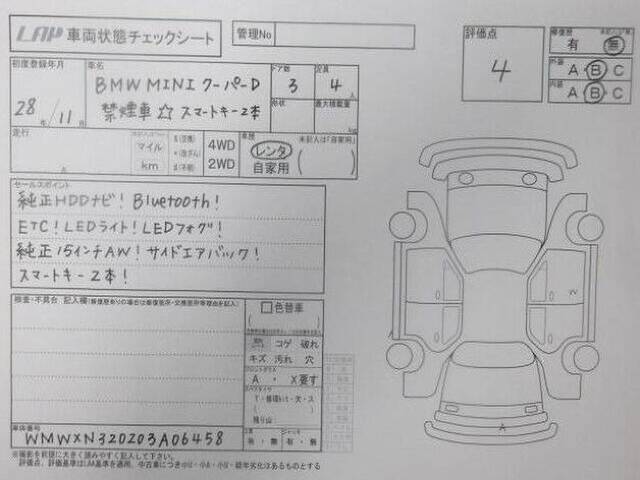 LAP 車両状態チェックシート
管理No
評価点
4
修復歴
有 無
外装
A B C
内装
A B C
初度登録年月
28年/11月
車名
BMW MINI クーパーD
禁煙車☆スマートキー2本
ドア数
3
定員
4人
形状
最大積載量
kg
走行
マイル
km
4WD
2WD
車歴
未記入は「自家用」
レンタ
自家用
セールスポイント
純正HDDナビ! Bluetooth!
ETC! LEDライト! LEDフォグ!
純正15インチAW! サイドエアバック!
スマートキー2本!
検査・不具合 記入欄
色替車
コゲ 破れ
キズ 汚れ 穴
フロントガラス
A ・ X要す
残り山
有・無 有・無
W
A
車台番号
WMWXN320203A06458
※撮影を状態に大きく読みやすくしてください。
評価点、評価基準はLAA基準を適用、中古車につき小U・小A・小S・経年劣化はあるものとする